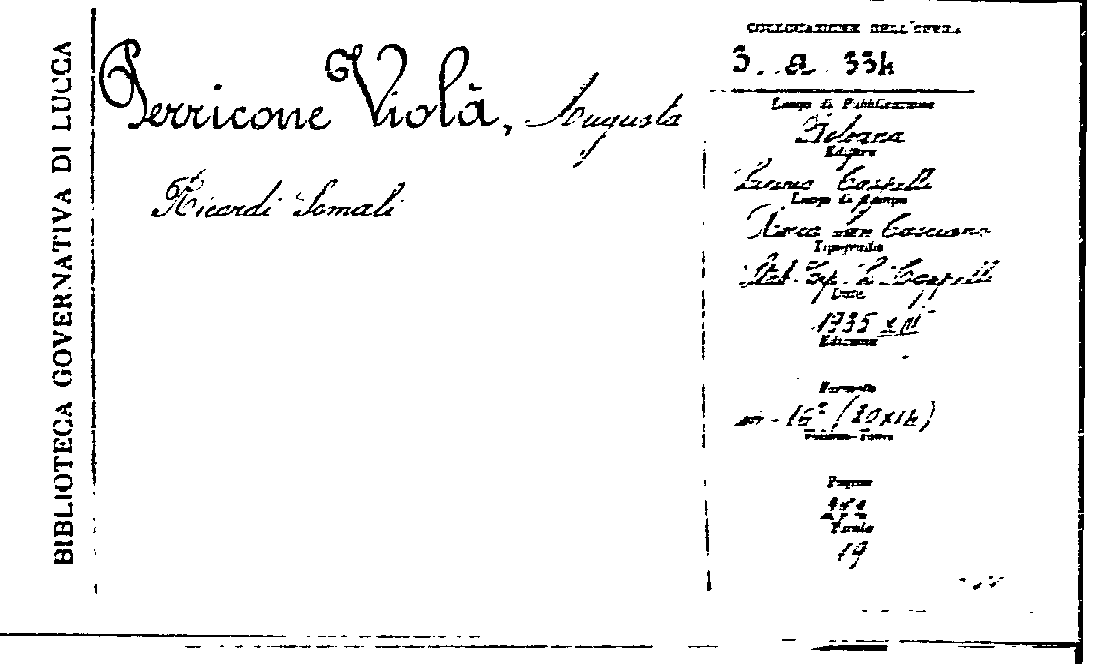 BIBLIOTECA GOVERNATIVA DI LUCCA
Perricone Violà, Augusta
Ricordi Somali
COLLOCAZIONE DELL'OPERA
3. a 334
Luogo di Pubblicazione
Bologna
Editore
Licinio Cappelli
Luogo di Stampa
Rocca San Casciano
Tipografia
Stab. Tip. L. Cappelli
Data
1935 XIII
Edizione
Formato
in-16° (20x14)
Volume-Tomo
Pagine
Tavole
19